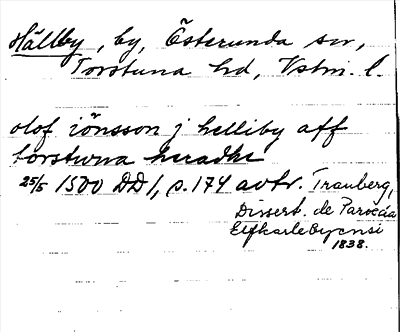 Hällby, by, Österunda sn,
Torstuna hd, Vstm. l.
olof iönsson j helliby aff
torstuna heradhe
25/5 1500 DD1, s. 174 avtr. Tranberg,
Dissert. de Paroecia
Elfkarlebyensi
1838.